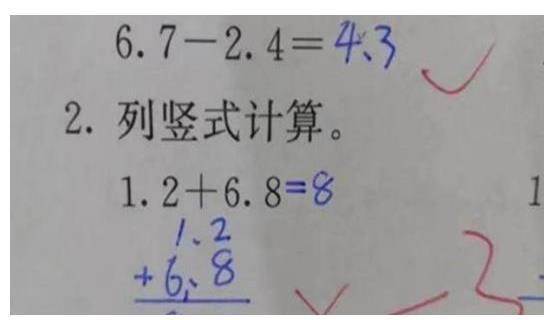 6.7-2.4=4.3
2. 列竖式计算。
1.2+6.8=8
1.2
+6.8